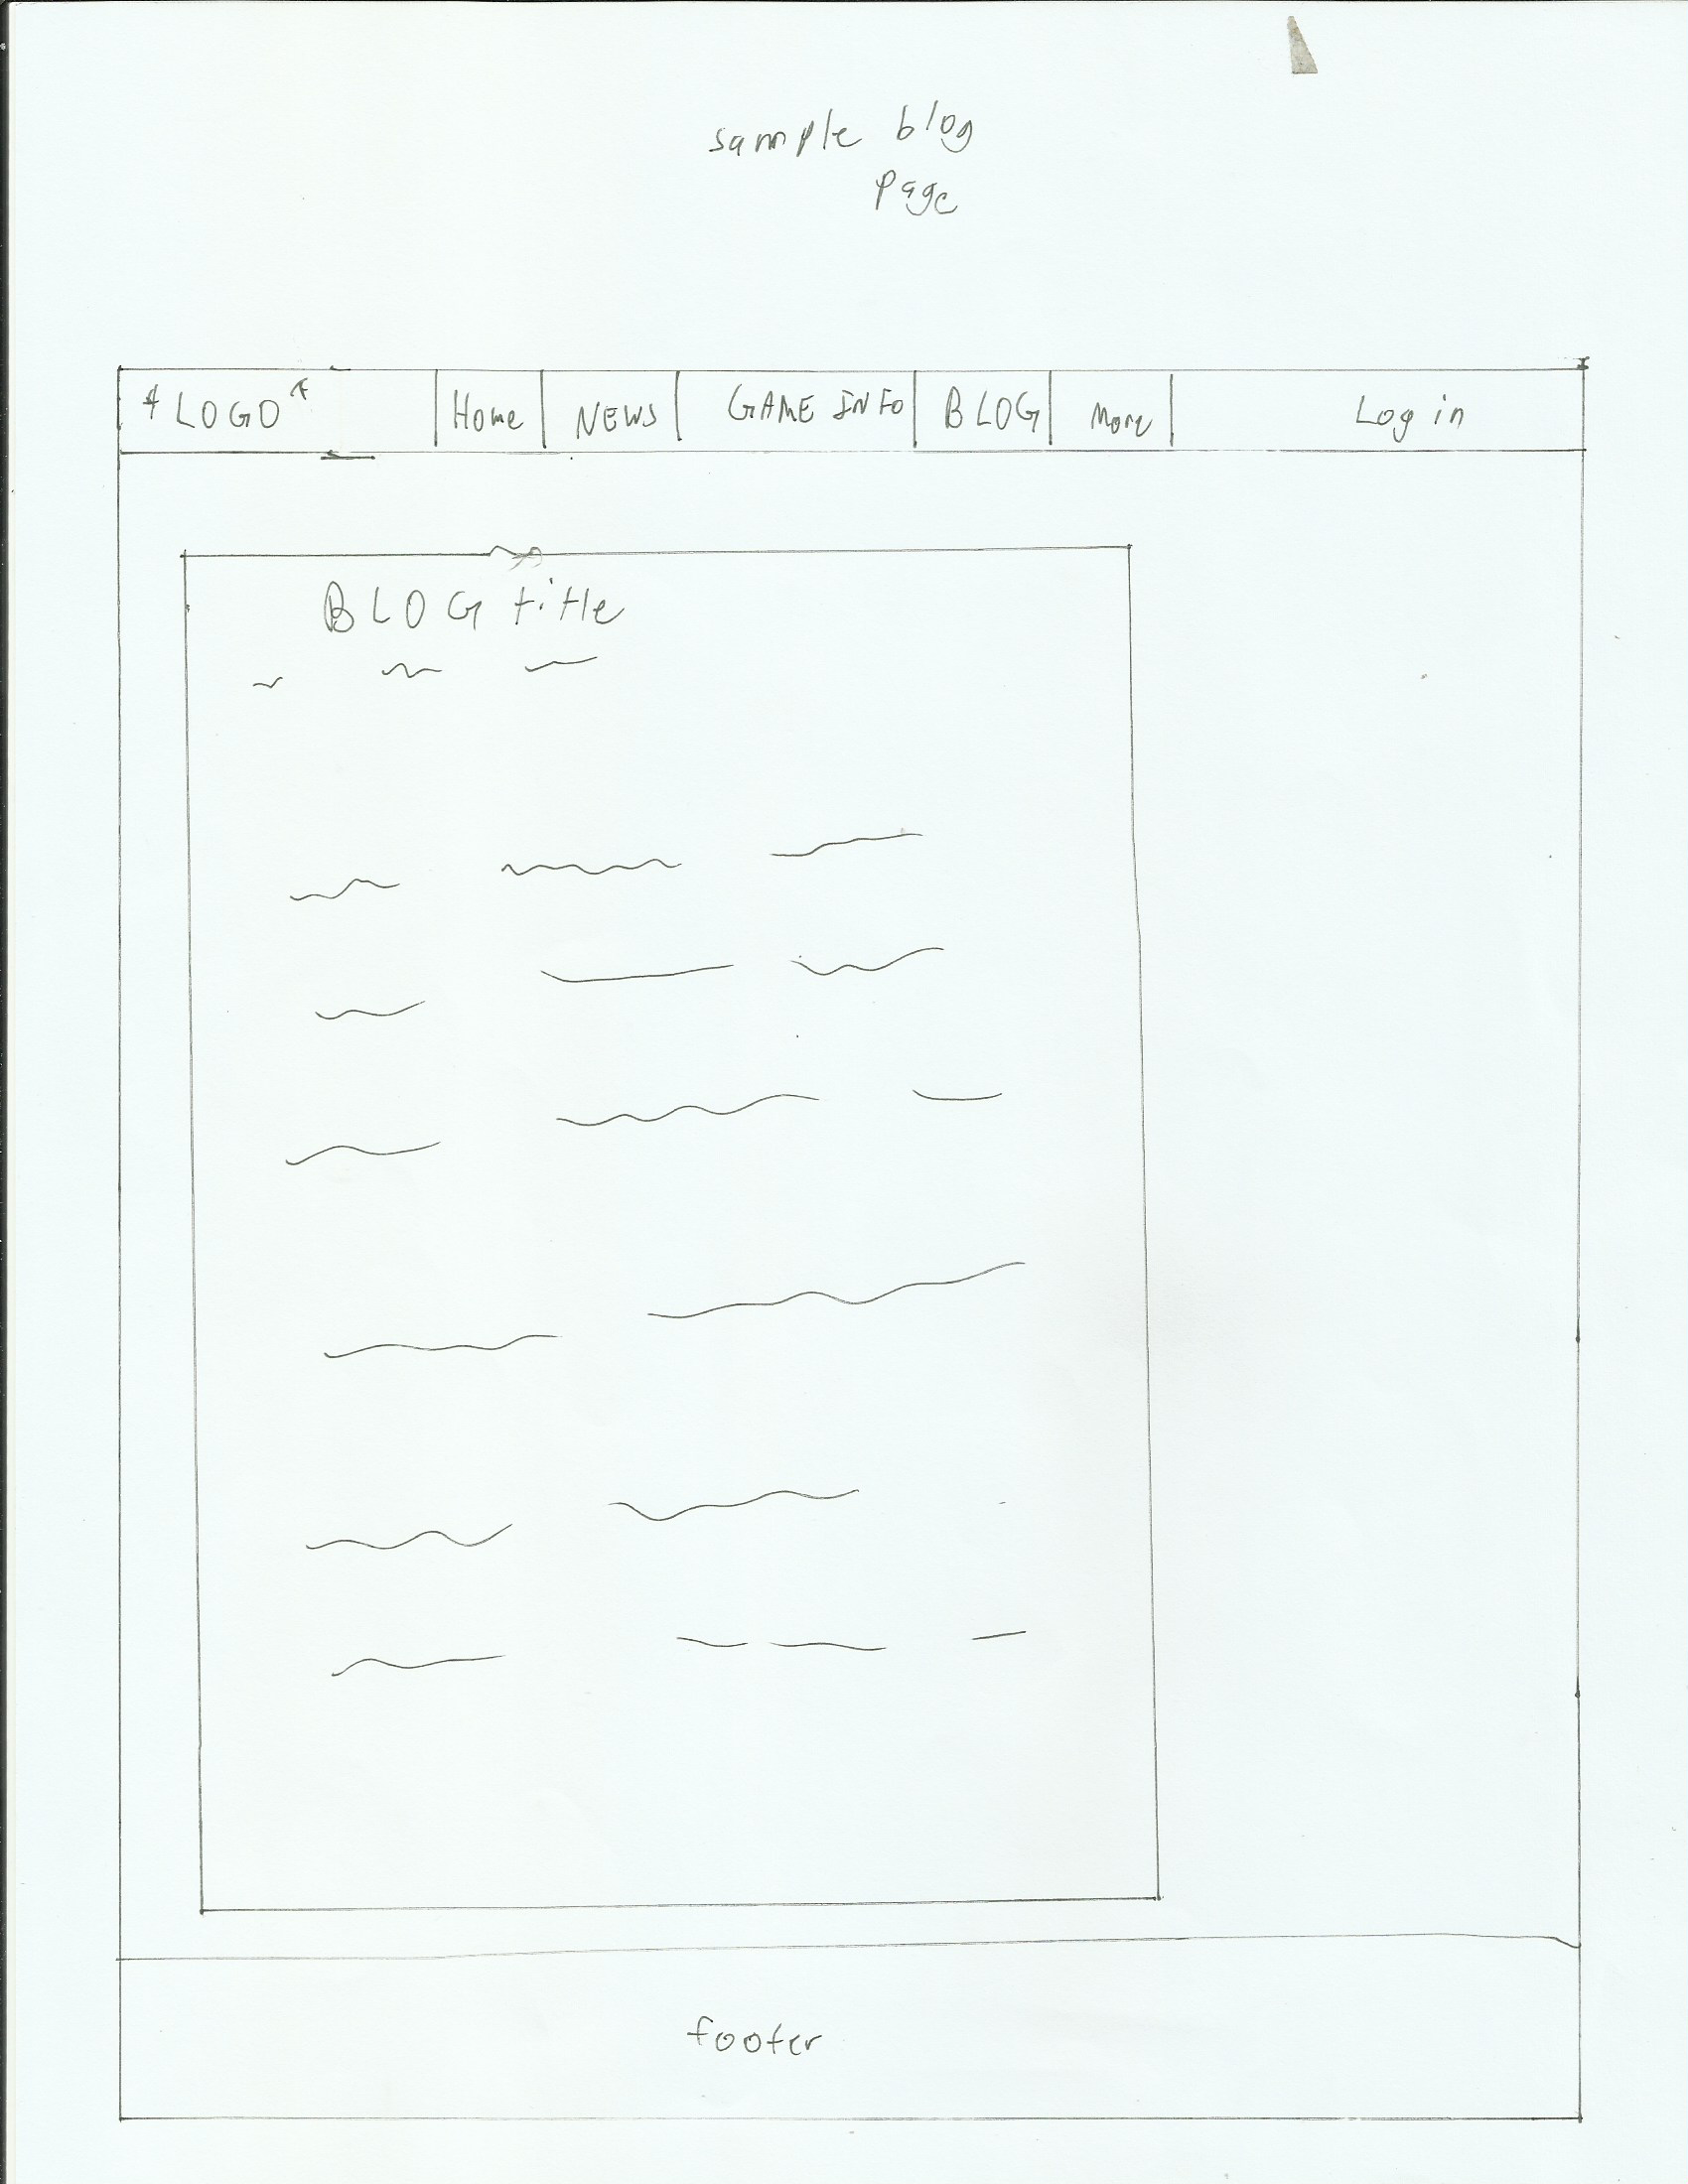 sample blog
page
*LOGO* Home NEWS GAME INFO BLOG More Log in
BLOG title
footer